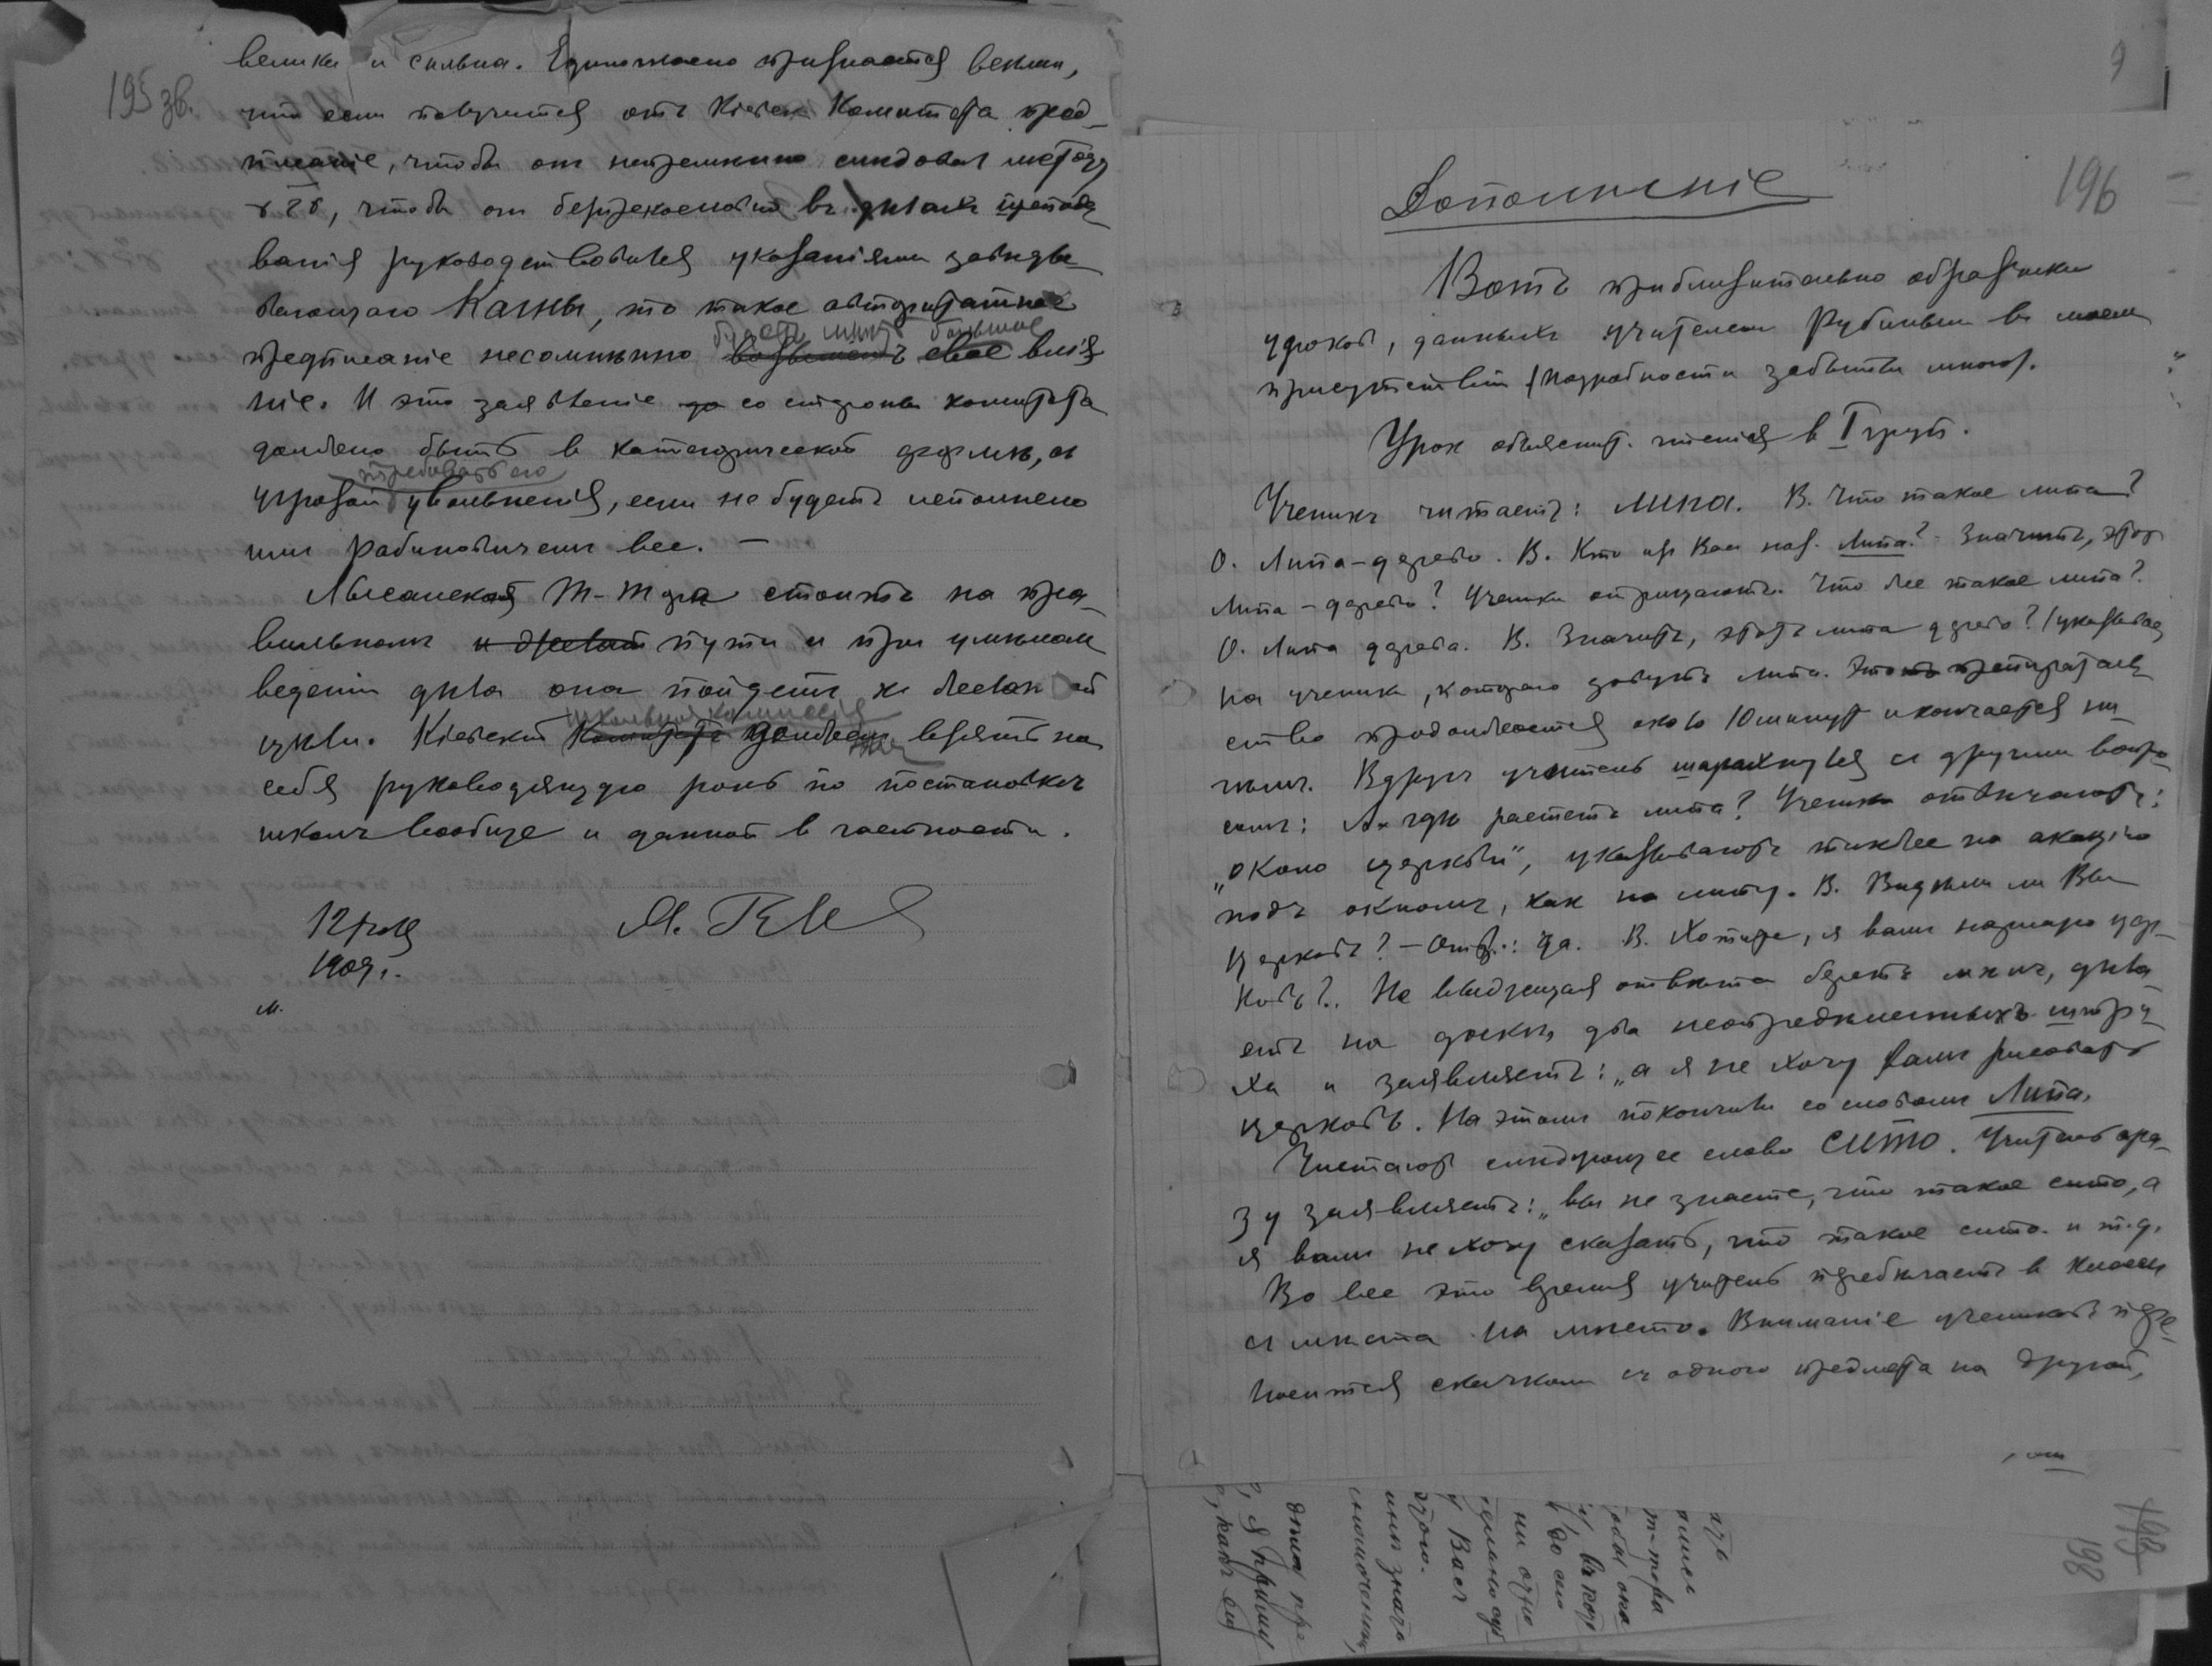 195 зв.
велика и сильна. Единогласно признается всеми,
что если получится отъ Кіевск Комитета пред-
писаніе, чтобы он непремѣнно слѣдовал методу
чтобы он безпрекословно въ дѣлах препода
ванія руководствовался указаніями завѣды-
вающаго Кагны, то такое авторитатное
будетъ имѣть большое
предписаніе несомнѣнно возымѣетъ свое влія
ніе. И это заявленіе до со стороны комитета
должно быть в категорической формѣ, съ
требовать его
угрозой увольненія, если не будетъ исполнено
им Рабиновичем все. —
Лысянская Т-Тора стоитъ на пра-
вильном и желан пути и при умѣлом
веденіи дѣла она пойдетъ к желан ой
школьная комиссія
цѣли. Кіевскій Комитетъ должен взять на
себя руководящую роль по постановкѣ
школ вообще и данной в частности.
12 іюля
1909 г.
м.
9
196
Дополненіе
Вотъ приблизительно образчики
уроков, данных учителем Рубиным в моем
присутствіи (подробности забыты мною).
Урок объяснит. чтенія в I груп.
Ученикъ читаетъ: липа. В. Что такое липа?
О. Липа-дерево. В. Кто из Вас наз. Липа? Значитъ, этот
Липа-дерево? Ученики отрицаютъ. Что же такое липа?
О. Липа дерево. В. Значитъ, этотъ липа дерево? (указывая
на ученика, котораго зовутъ Липа. Это препирательс
ство продолжается около 10 минут и кончается ни
чѣм. Вдруг учитель шарахнулся съ другим вопро
сом: А гдѣ растетъ липа? Ученики отвѣчаютъ:
„около церкви", указываютъ также на акацію
подъ окном, как на липу. В. Видѣли ли Вы
церковь? — Отв.: Да. В. Хотите, я вам нарисую цер-
ковь? Не выждущая отвѣта беретъ мѣл, дѣла
етъ на доскѣ два неопредѣленныхъ штри
ха и заявляетъ: „а я не хочу вам рисовать
церковь. На этом покончили со словом Липа.
Читают слѣдующее слово сито. Учитель сра-
зу заявляетъ: „вы не знаете, что такое сито, а
я вам не хочу сказать, что такое сито. и т.д.
Во все это время учитель перебѣгаетъ в классѣ
съ мѣста на мѣсто. Вниманіе учениковъ пере-
носится скачком съ одного предмета на другой,
198